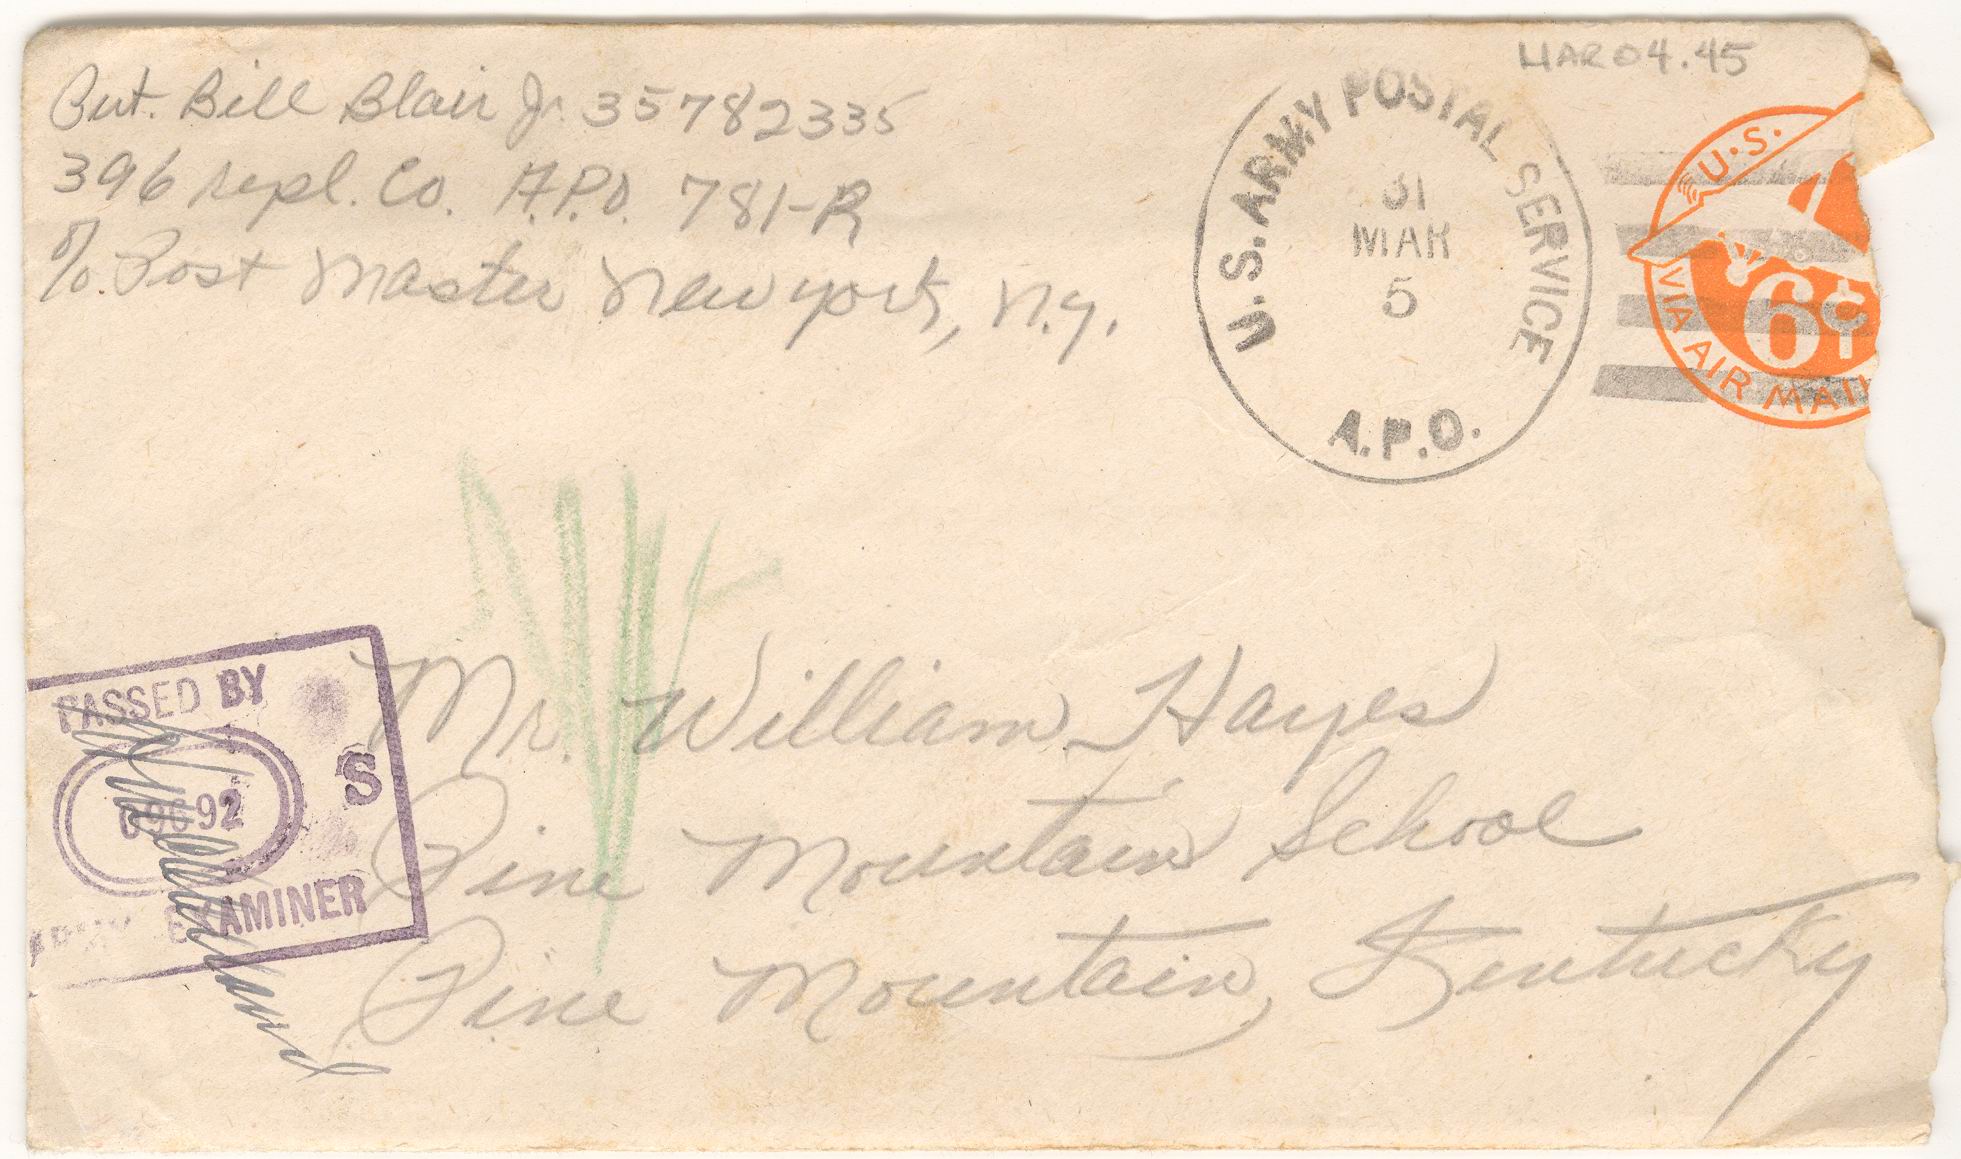 Pvt. Bill Blair Jr. 35782335
396 repl. Co. A.P.O. 781-R
c/o. Post Master New york, N.y.
MAR 04.45
U.S. ARMY POSTAL SERVICE
31
MAR
5
A.P.O.
U.S.
6¢
VIA AIR MAIL
PASSED BY
S
ARMY EXAMINER
Mr. William Hayes
Pine Mountain School
Pine Mountain, Kentucky